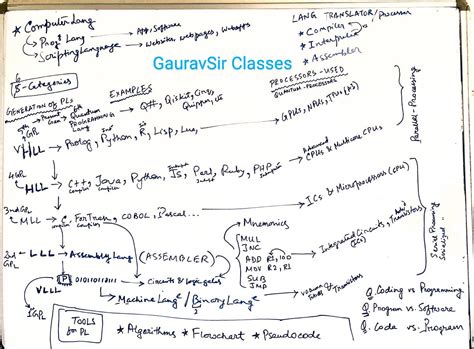 * Computer Lang
→ Prog. Lang → App, Software
→ Scripting Language → Websites, Webpages, Webapps
LANG TRANSLATOR/Processor
* Compiler
* Interpreter
* Assembler
GauravSir Classes
5-Categories
GENERATION OF PLs
EXAMPLES
PROCESSORS-USED
QUANTUM-PROCESSORS
5th GPL → Present Gen → Quantum PROGRAMMING Lang → Q#, Qiskit, Cirq, Quipper,
VHLL → Prolog, Python, R, Lisp, Lua, → GPUs, NPUs, TPUs (AI)
Parallel-Processing
4GPL
HLL → C++, Java, Python, JS, Perl, Ruby, PHP → Advanced CPUs & Multicore CPUs
3rd GPL
MLL → C, FORTRAN, COBOL, Pascal... → ICs & Microprocessors (CPU)
Serial Processing
2nd GPL
LLL → Assembly Lang (ASSEMBLER)
Mnemonics
MUL
INC
ADD R1, 100
MOV R2, R1
SUB
JMP
Integrated Circuits, Transistors
(ICs)
P 010110111 → Circuits & logic gates
VLLL
1GPL
Machine Lang / Binary Lang → Vacuum Transistors
Q. Coding vs Programming
Q. Program vs Software
Q. Code vs Program
TOOLS for PL
* Algorithms * Flowchart * Pseudocode